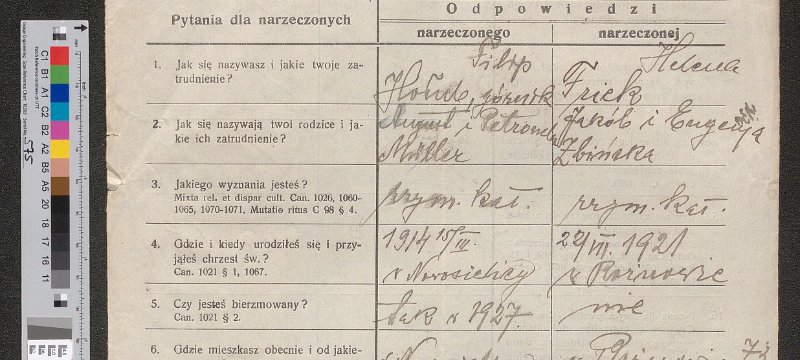 Odpowiedzi
Pytania dla narzeczonych
narzeczonego
narzeczonej
1. Jak się nazywasz i jakie twoje za-
trudnienie?
Filip
górnik
Helena
Frick
2. Jak się nazywają twoi rodzice i ja-
kie ich zatrudnienie?
August i Petronela
Müller
Jakób i Eugenja
Zbińska
3. Jakiego wyznania jesteś?
Mixta rel. et dispar cult. Can. 1026, 1060-
1065, 1070-1071, Mutatio ritus C 98 § 4.
rzym. kat.
rzym. kat.
4. Gdzie i kiedy urodziłeś się i przy-
jąłeś chrzest św.?
Can. 1021 § 1, 1067.
1914 15/III.
w Nowosielicy
22/III. 1921
w Rożniowie
5. Czy jesteś bierzmowany?
Can. 1021 § 2.
tak w 1927.
nie
6. Gdzie mieszkasz obecnie i od jakie-
575
C1
B1
A1
C2
B2
A2
B5
A5